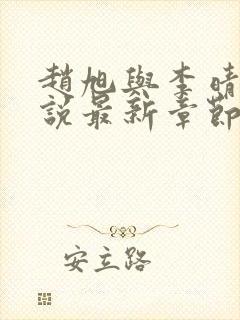 趙旭與李晴
說最新章節
安立路